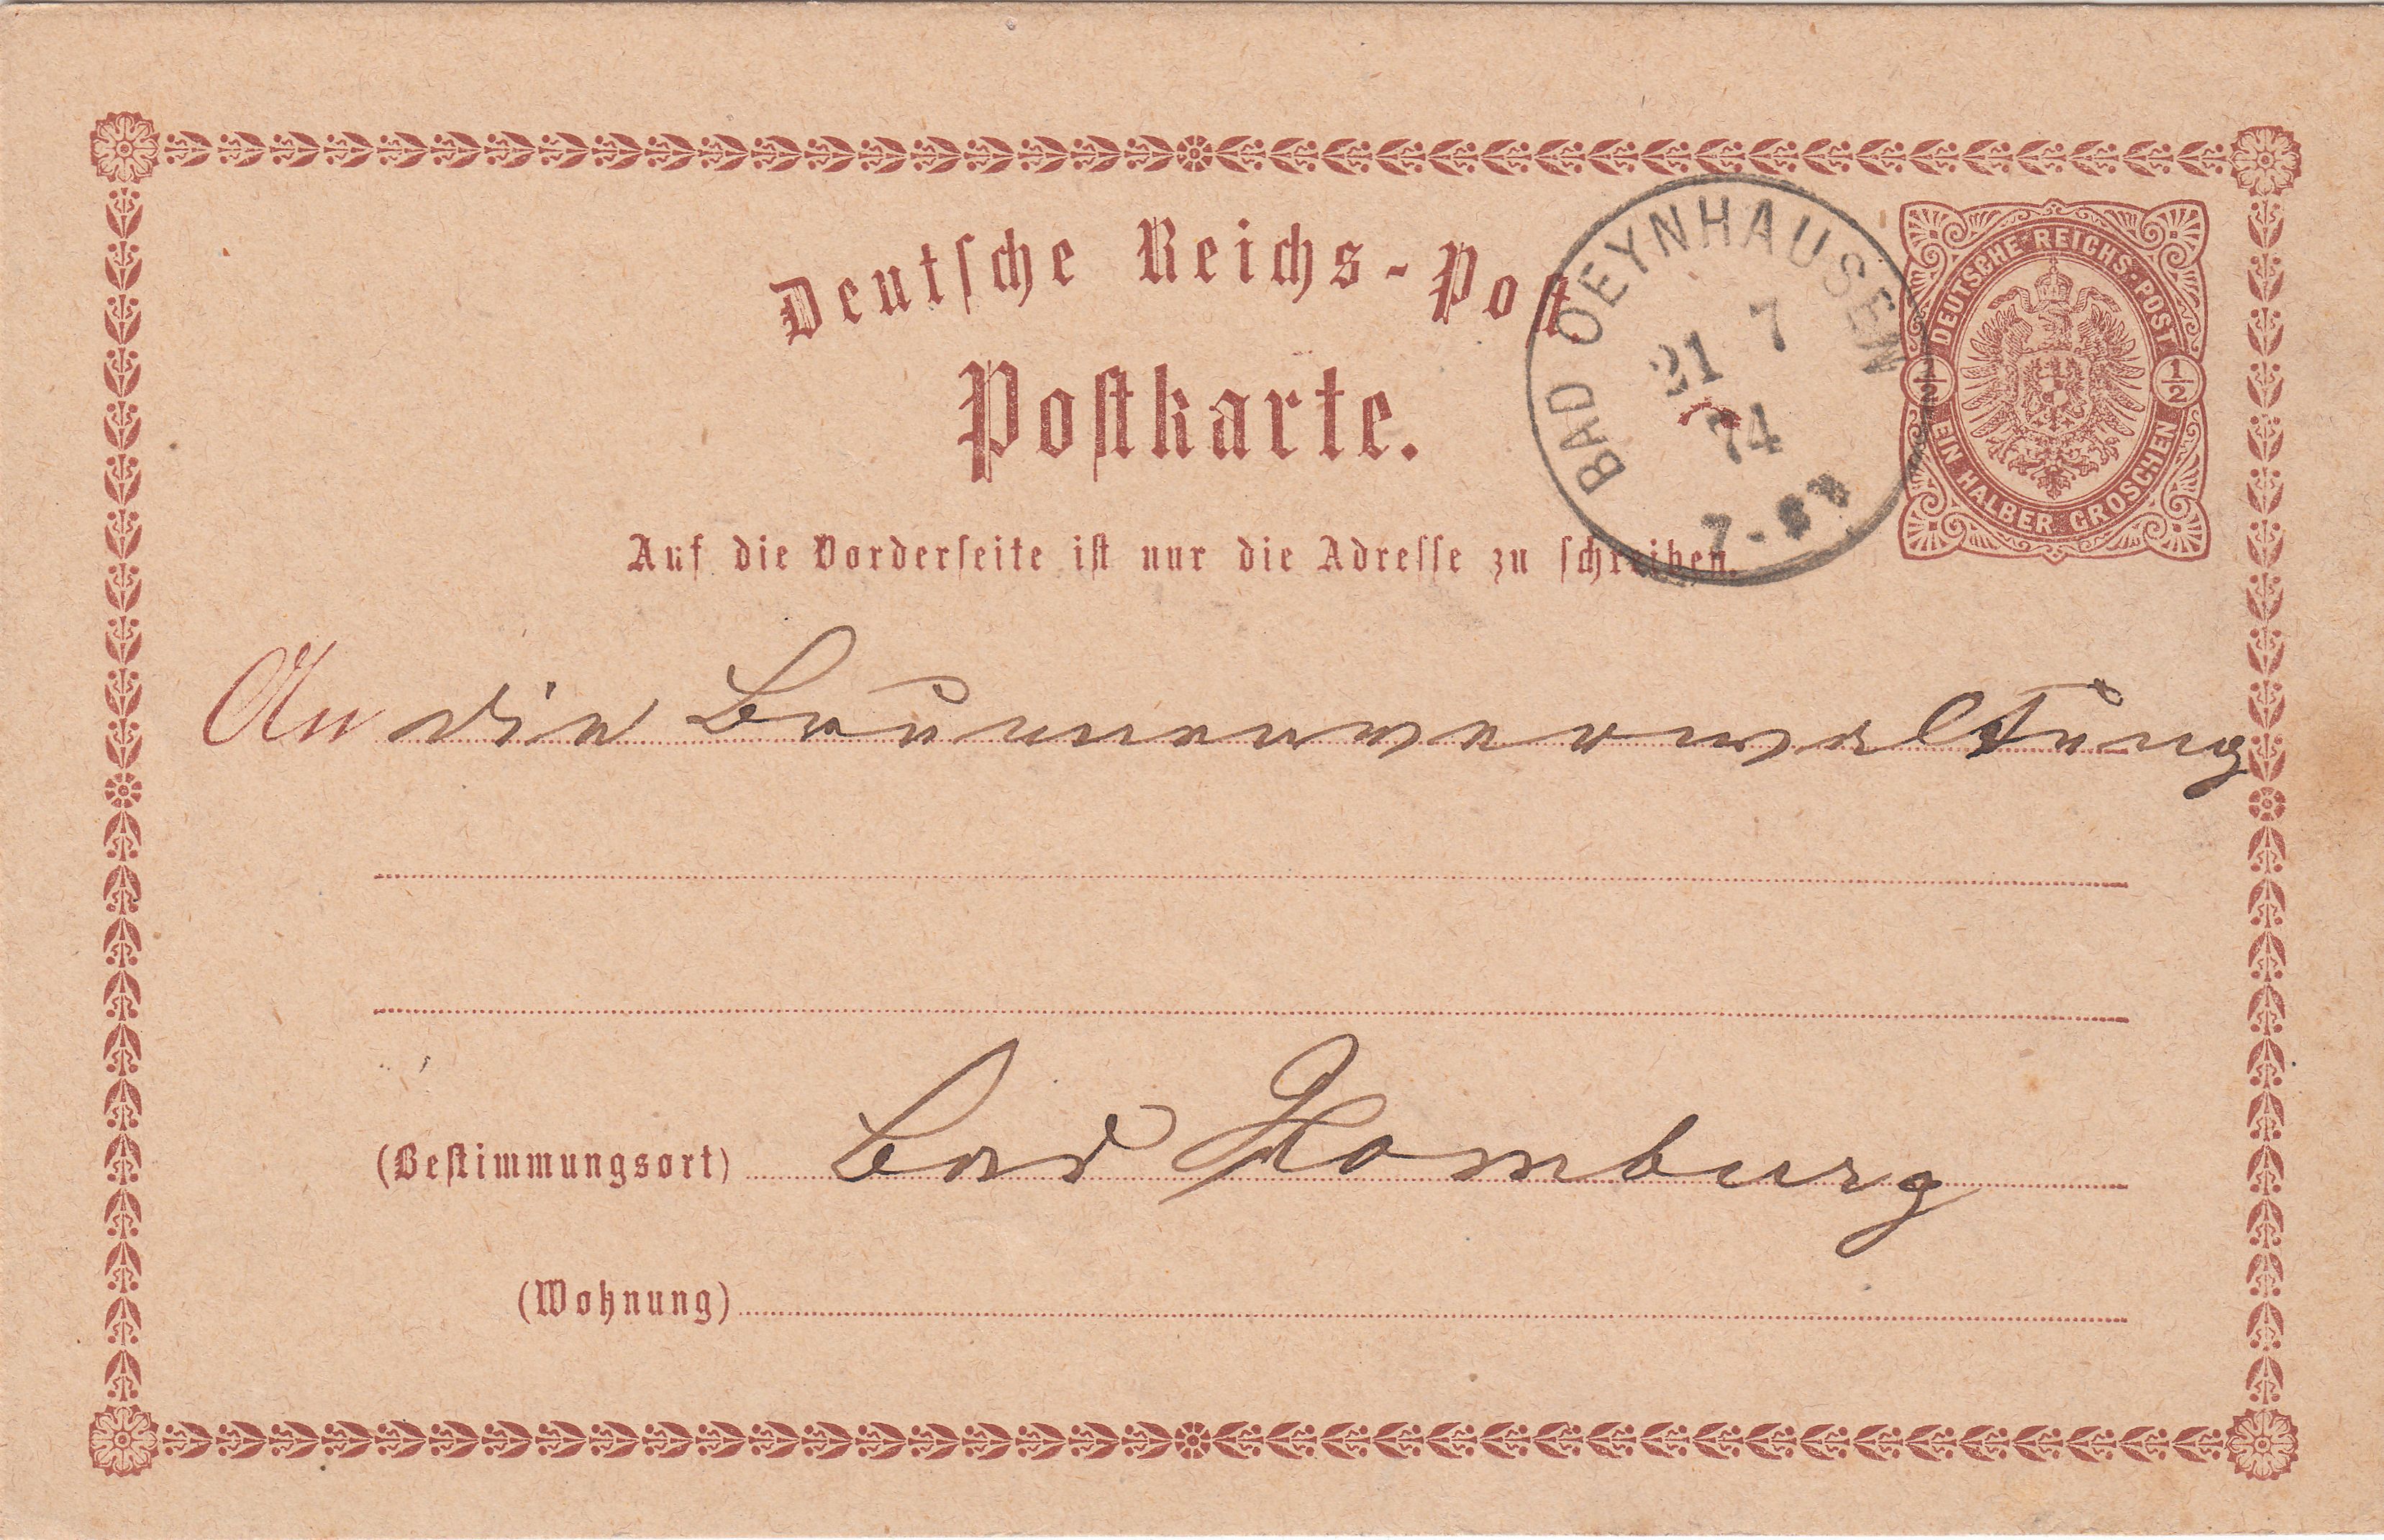 Deutsche Reichs-Post.
Postkarte.
BAD OEYNHAUSEN
21 7
74
7-8
DEUTSCHE REICHS-POST
1/2 1/2
EIN HALBER GROSCHEN
Auf die Vorderseite ist nur die Adresse zu schreiben.
An die Brunnenverwaltung
(Bestimmungsort) Bad Homburg
(Wohnung)